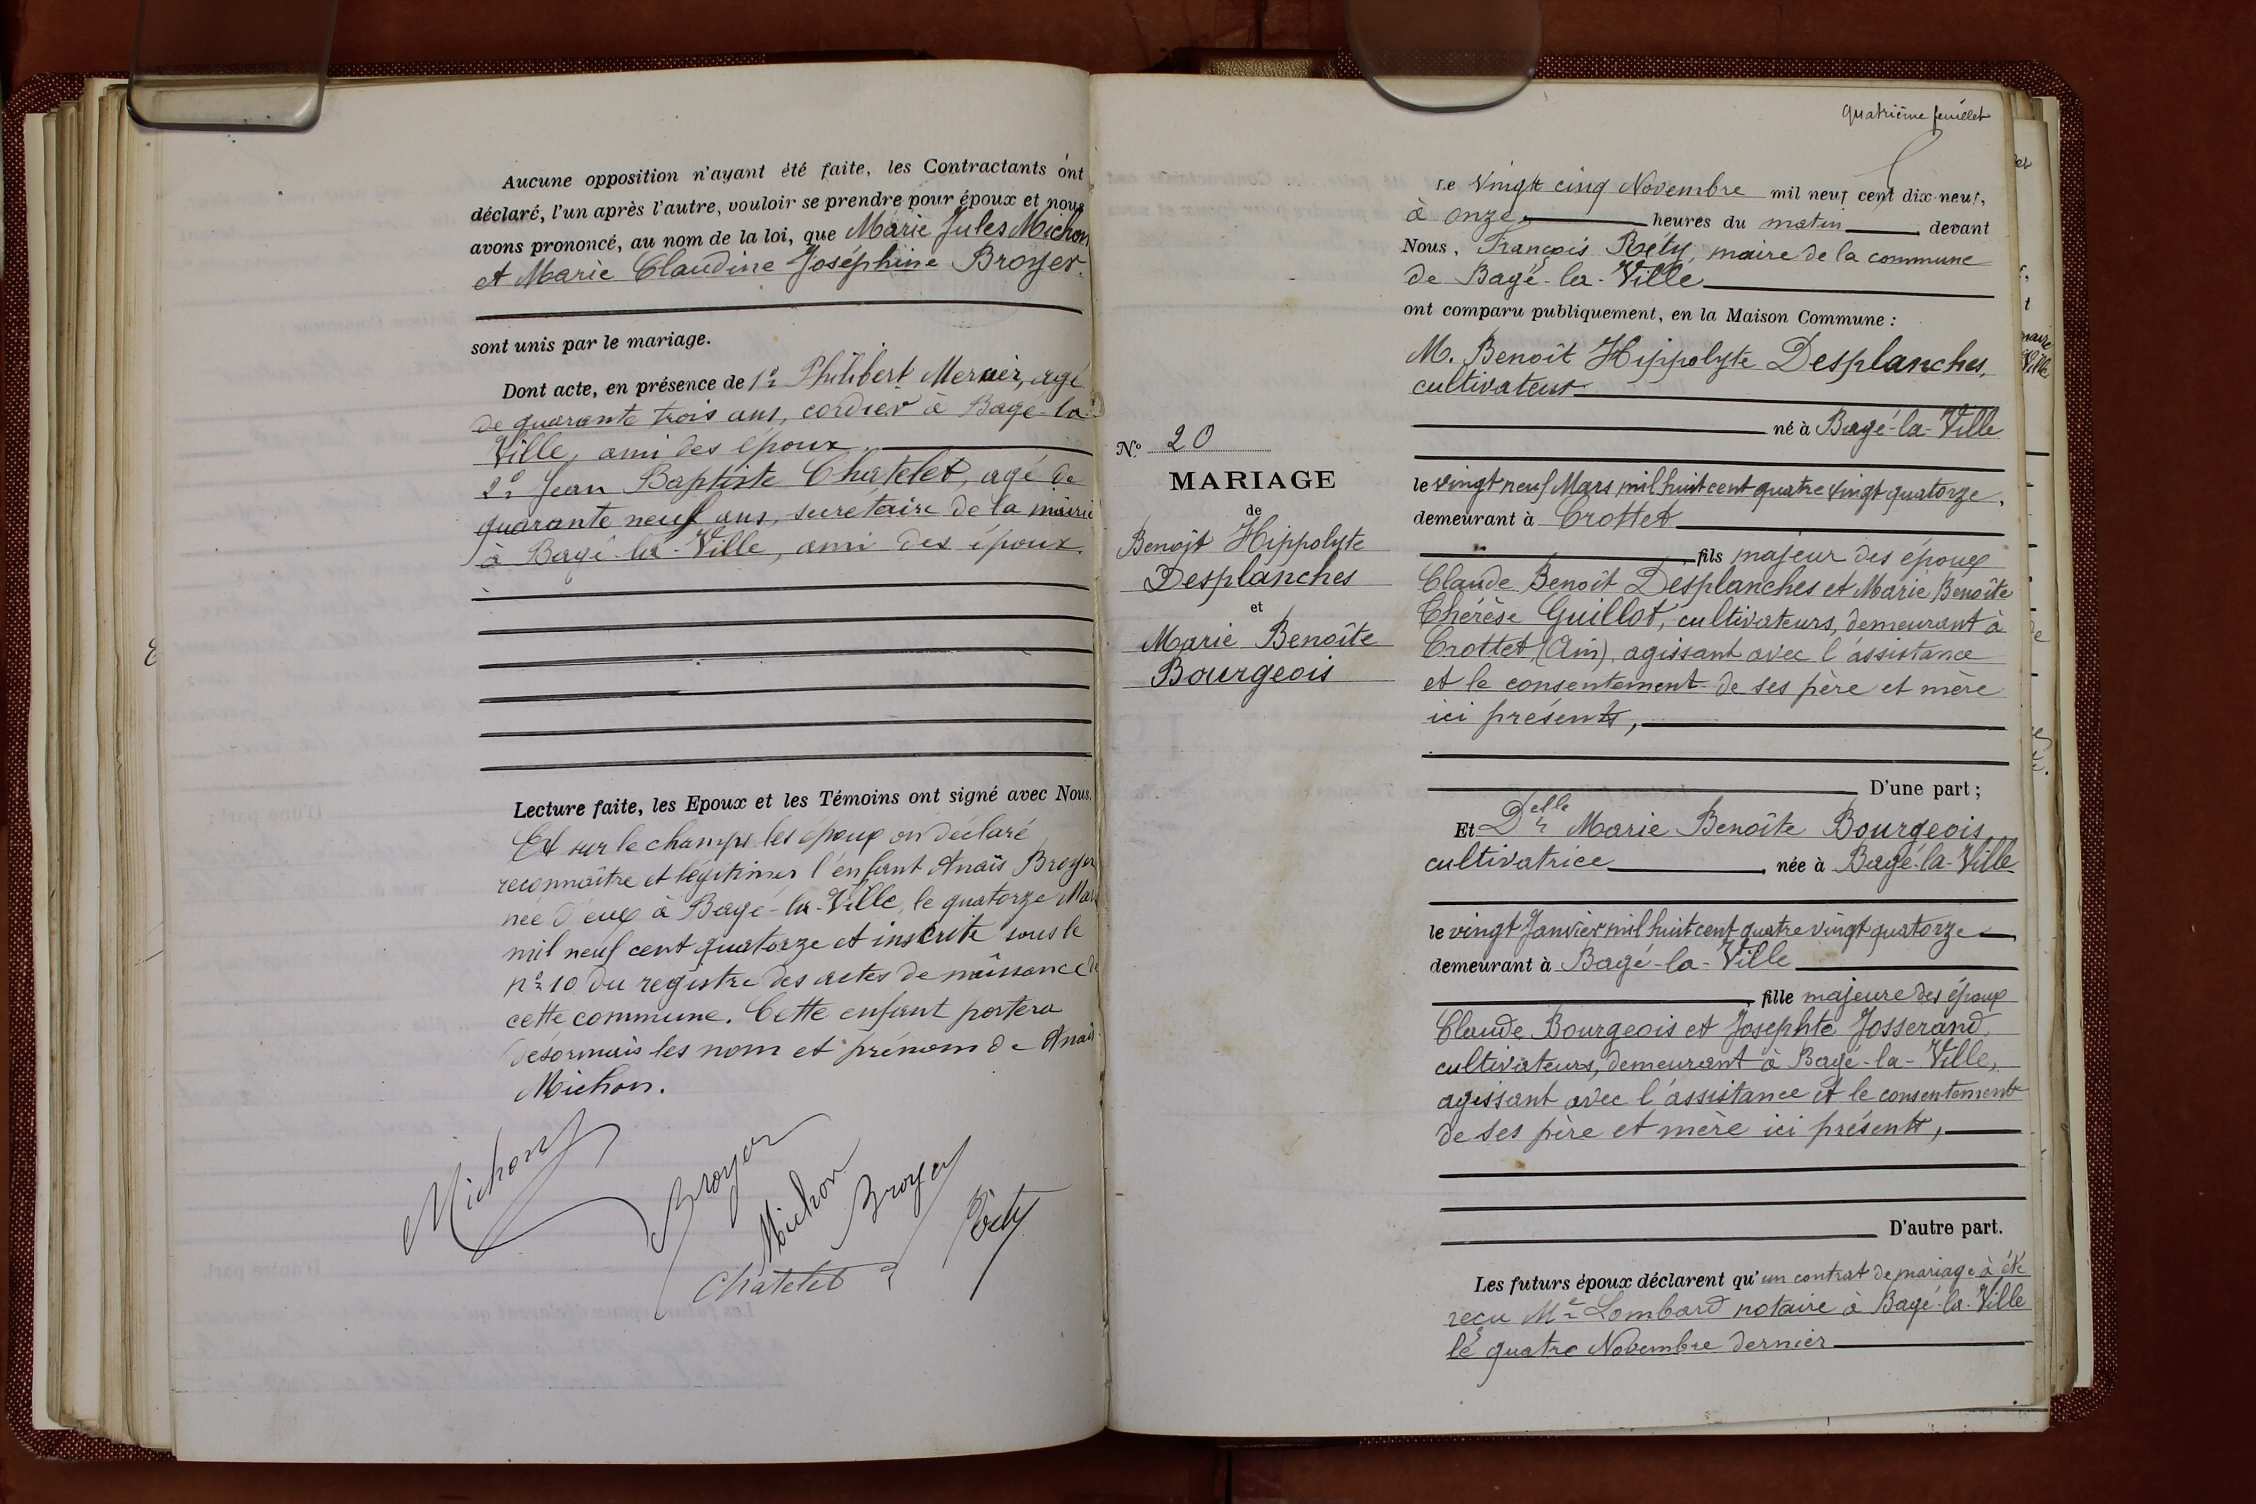 Aucune opposition n'ayant été faite, les Contractants ont
déclaré, l'un après l'autre, vouloir se prendre pour époux et nous
avons prononcé, au nom de la loi, que Marie Jules Michon
et Marie Claudine Joséphine Broyer.
sont unis par le mariage.
Dont acte, en présence de 1º Philibert Mercier, agé
de quarante trois ans, cordier à Bagé-la-
Ville, ami des époux
2º Jean Baptiste Chatelet, agé de
quarante neuf ans, secrétaire de la mairie
à Bagé-la-Ville, ami des époux.
Lecture faite, les Epoux et les Témoins ont signé avec Nous.
Et sur le champs les époux on déclaré
reconnaître et légitimer l'enfant Anaïs Broyer
née d'eux à Bagé-la-Ville, le quatorze Mars
mil neuf cent quatorze et inscrite sous le
nº 10 du registre des actes de naissance de
cette commune. Cette enfant portera
désormais les nom et prénom de Anaïs
Michon.
Michon
Broyer
Michon
Broyer
Réty
Chatelet
quatrième feuillet
Nº 20
MARIAGE
de
Benoît Hippolyte
Desplanches
et
Marie Benoîte
Bourgeois
Le vingt cinq Novembre mil neuf cent dix-neuf,
à onze heures du matin devant
Nous, François Réty, maire de la commune
de Bagé-la-Ville
ont comparu publiquement, en la Maison Commune :
M. Benoît Hippolyte Desplanches,
cultivateur
né à Bagé-la-Ville
le vingt neuf Mars mil huit cent quatre vingt quatorze,
demeurant à Crottet
fils majeur des époux
Claude Benoît Desplanches et Marie Benoîte
Thérèse Guillot, cultivateurs, demeurant à
Crottet (Ain), agissant avec l'assistance
et le consentement de ses père et mère
ici présents,
D'une part ;
Et Delle Marie Benoîte Bourgeois,
cultivatrice, née à Bagé-la-Ville
le vingt Janvier mil huit cent quatre vingt quatorze
demeurant à Bagé-la-Ville
fille majeure des époux
Claude Bourgeois et Josephte Josserand,
cultivateurs, demeurant à Bagé-la-Ville,
agissant avec l'assistance et le consentement
de ses père et mère ici présents,
D'autre part.
Les futurs époux déclarent qu'un contrat de mariage à été
reçu Me Lombard notaire à Bagé-la-Ville
le quatre Novembre dernier